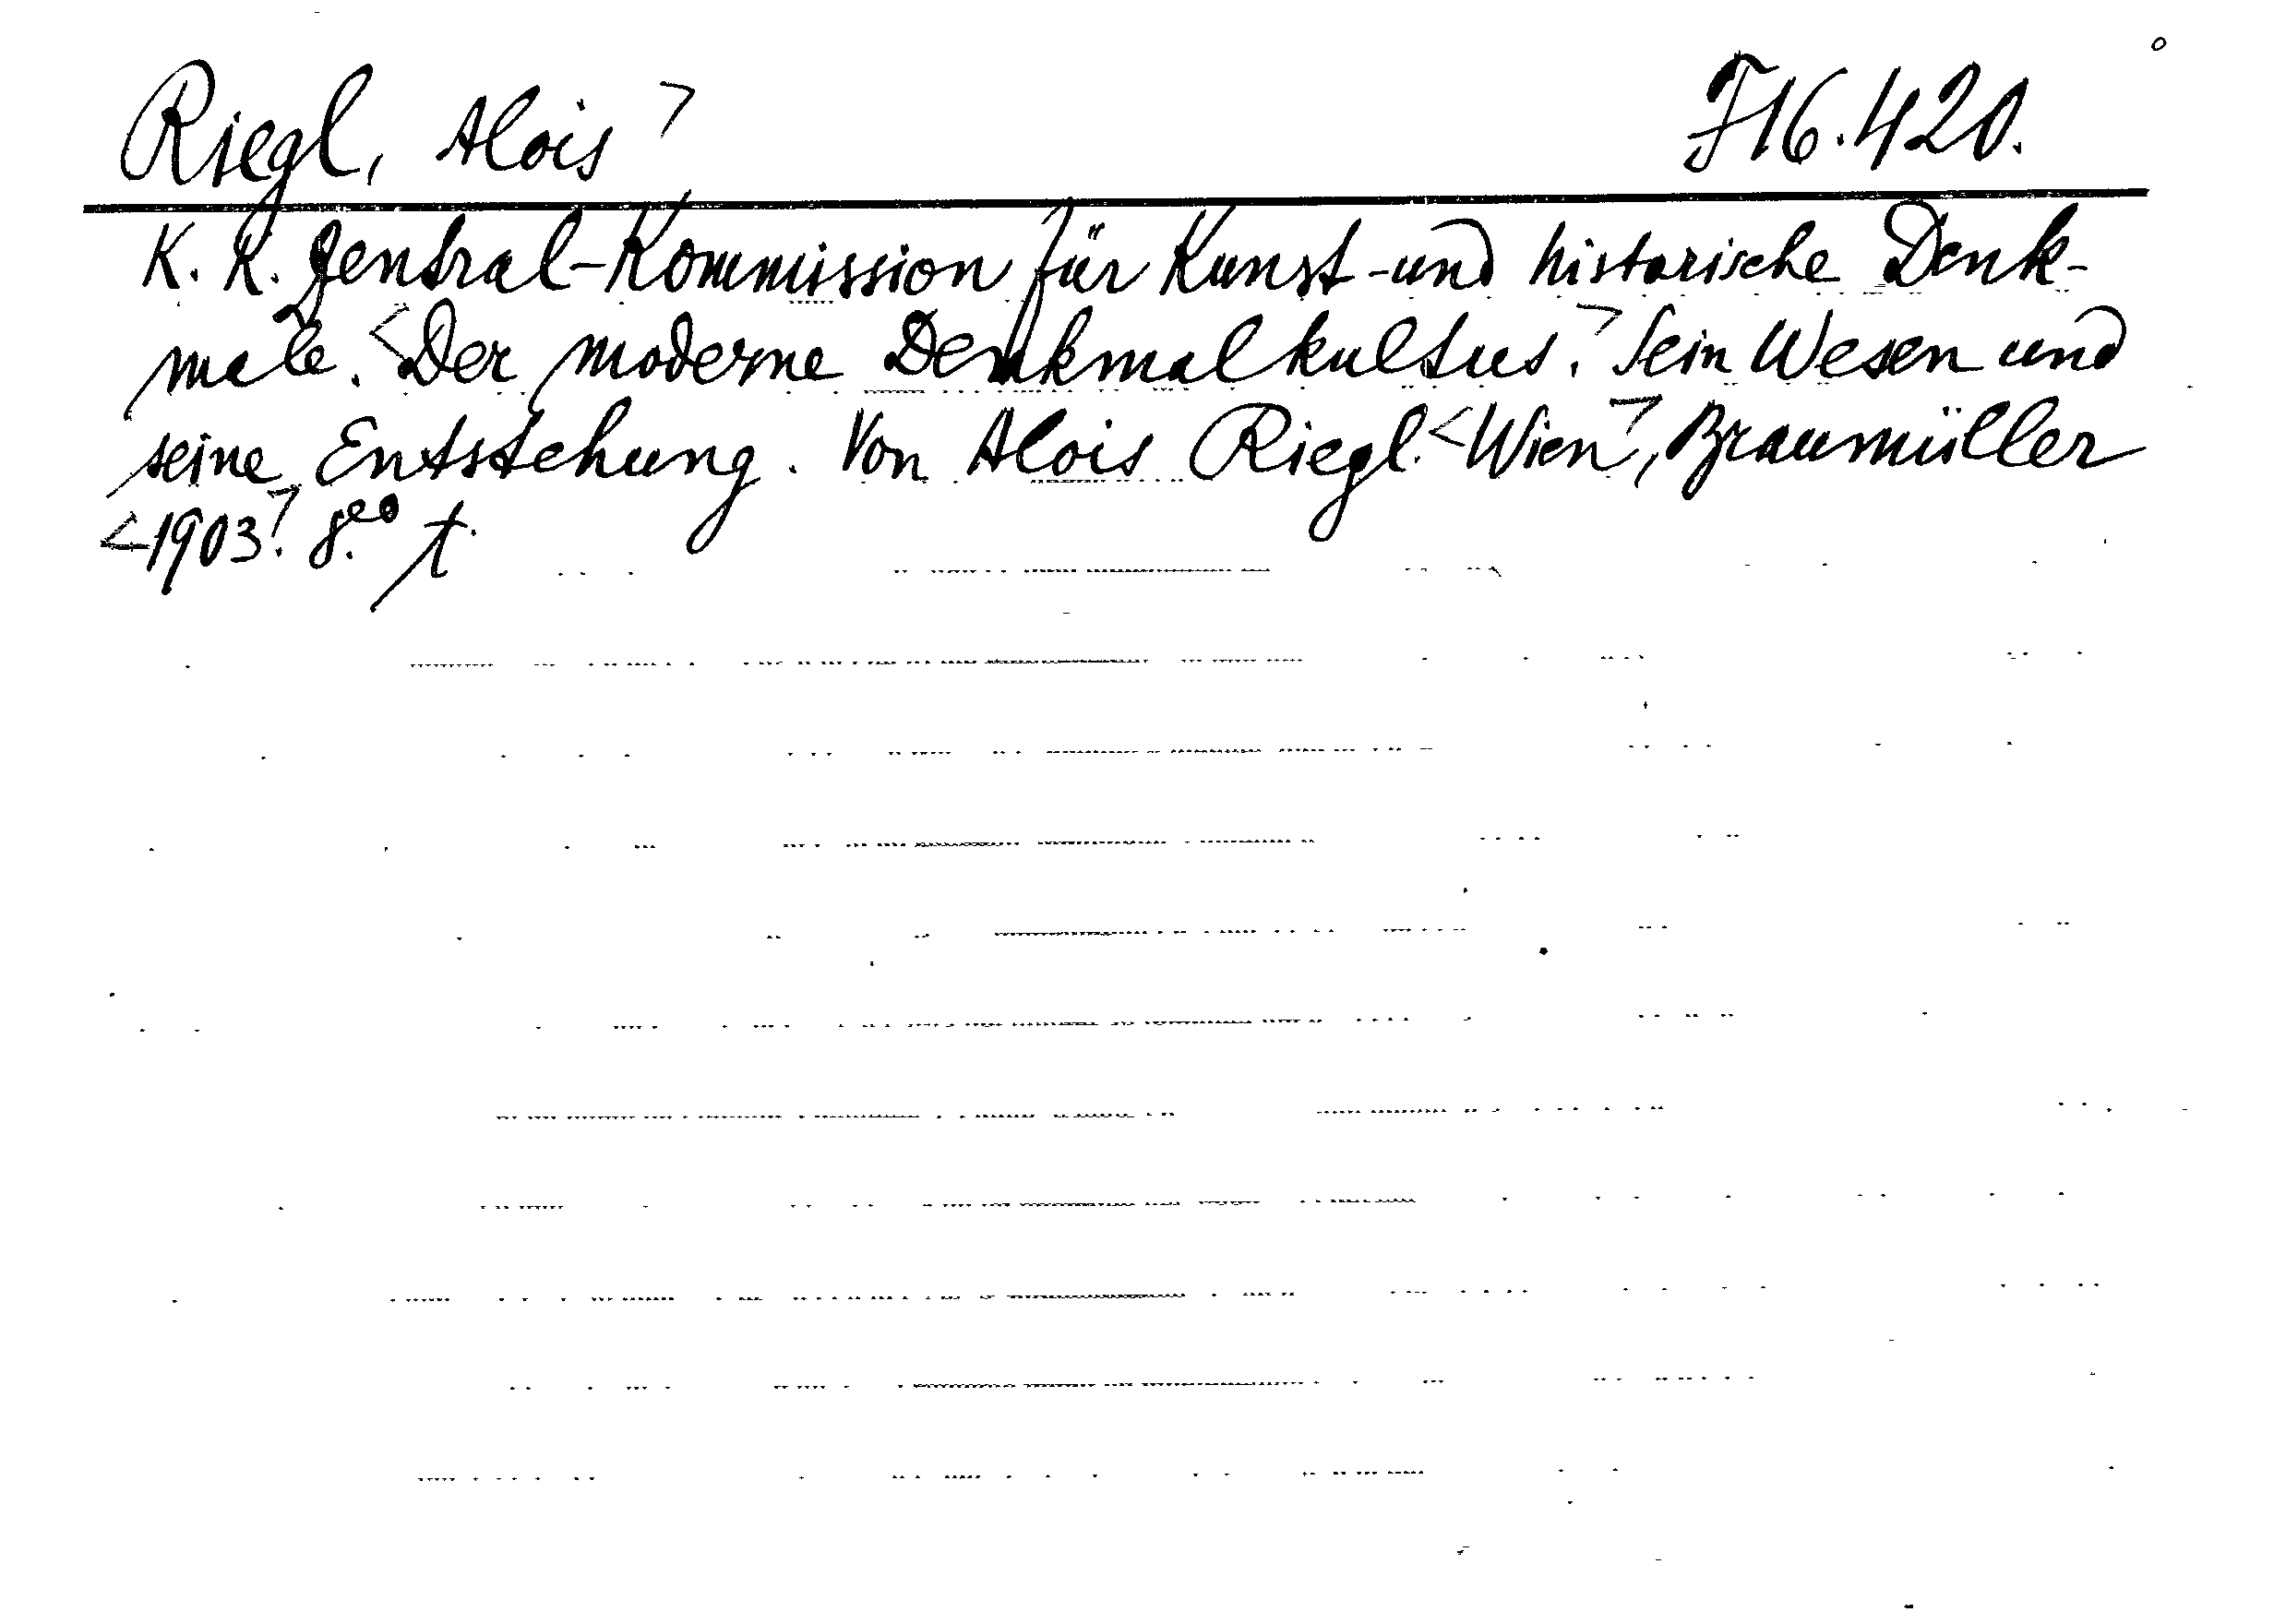 Riegl, Alois > F 16.420.
K. K. Zentral-Kommission für Kunst- und historische Denk-
male. <Der moderne Denkmalkultus.> Sein Wesen und
seine Entstehung. Von Alois Riegl. <Wien>, Braumüller
<1903>. 8.°